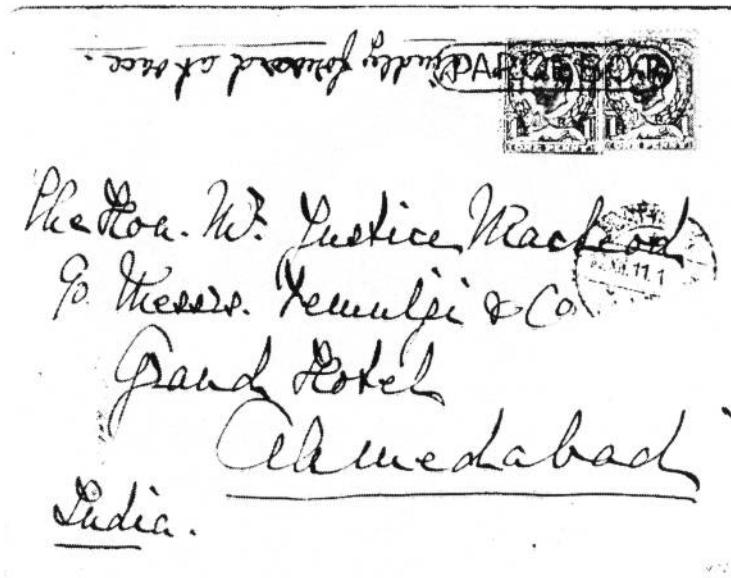 Kindly forward at once.
PAQUEBOT
ONE PENNY ONE PENNY
The Hon. Mr. Justice Macleod
11.1
c/o Messrs. Jemulji & Co
Grand Hotel
Ahmedabad
India.